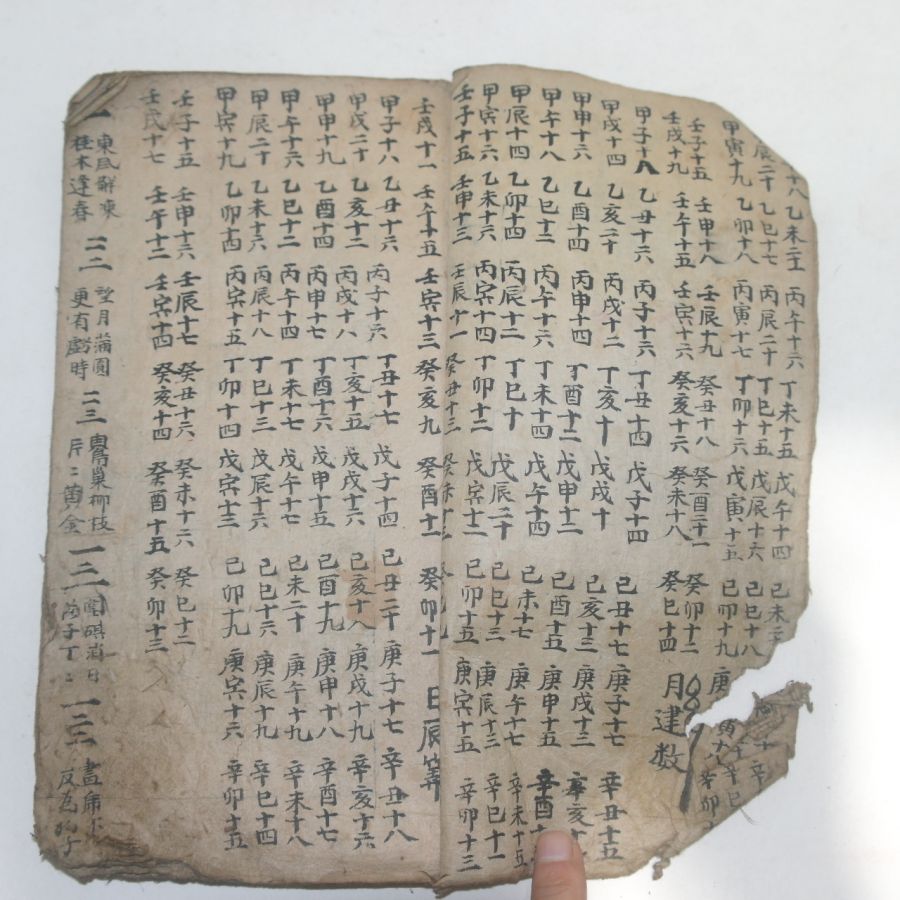 十八 乙未二 丙午十六 丁未十五 戊午十四 己未
辰二十 乙巳十七 丙辰二十 丁巳十五 戊辰十六 己巳十八
甲寅十九 乙卯十八 丙寅十七 丁卯十六 戊寅十五 己卯十九 庚 辛卯
壬子十五 壬申十八 壬辰十九 癸丑十八 癸酉二十一 癸卯十二
壬戌十九 壬午十五 壬寅十六 癸亥十六 癸未十八 癸巳十四 月建数
甲子十八 乙丑十六 丙子十六 丁丑十四 戊子十四 己丑十七 庚子十七 辛丑十五
甲戌十四 乙亥二十 丙戌十二 丁亥十 戊戌十 己亥十三 庚戌十三 辛亥十
甲申十六 乙酉十四 丙申十四 丁酉十二 戊申十二 己酉十五 庚申十五 辛酉十
甲午十八 乙巳十二 丙午十六 丁未十四 戊午十四 己未十七 庚午十七 辛未十五
甲辰十四 乙卯十四 丙辰十二 丁巳十 戊辰二十 己巳十三 庚辰十三 辛巳十一
甲寅十六 乙未十六 丙寅十四 丁卯十二 戊寅十二 己卯十五 庚寅十五 辛卯十三
壬子十五 壬申十三 壬辰十一 癸丑十三 癸未十
壬戌十一 壬午十五 壬寅十三 癸亥九 癸酉十二 癸卯十一 日辰筭
甲子十八 乙丑十六 丙子十六 丁丑十七 戊子十四 己丑二十 庚子十七 辛丑十八
甲戌二十 乙亥十二 丙戌十八 丁亥十五 戊戌十六 己亥十八 庚戌十九 辛亥十六
甲申十九 乙酉十四 丙申十七 丁酉十六 戊申十五 己酉十九 庚申十八 辛酉十七
甲午十六 乙巳十二 丙午十四 丁未十七 戊午十七 己未二十 庚午十九 辛未十八
甲辰二十 乙未十六 丙辰十八 丁巳十三 戊辰十六 己巳十六 庚辰十九 辛巳十四
甲寅十九 乙卯十四 丙寅十五 丁卯十四 戊寅十三 己卯十九 庚寅十六 辛卯十五
壬子十五 壬申十六 壬辰十七 癸丑十六 癸未十六 癸巳十二
壬戌十七 壬午十二 壬寅十四 癸亥十四 癸酉十五 癸卯十三
東風解凍
枯木逢春
望月蒲圓
更有虧時
二三
鶯巢柳枝
片二黄金
一三一
圍碁消日
落子丁二
一三二
畫虎不
反為狗子